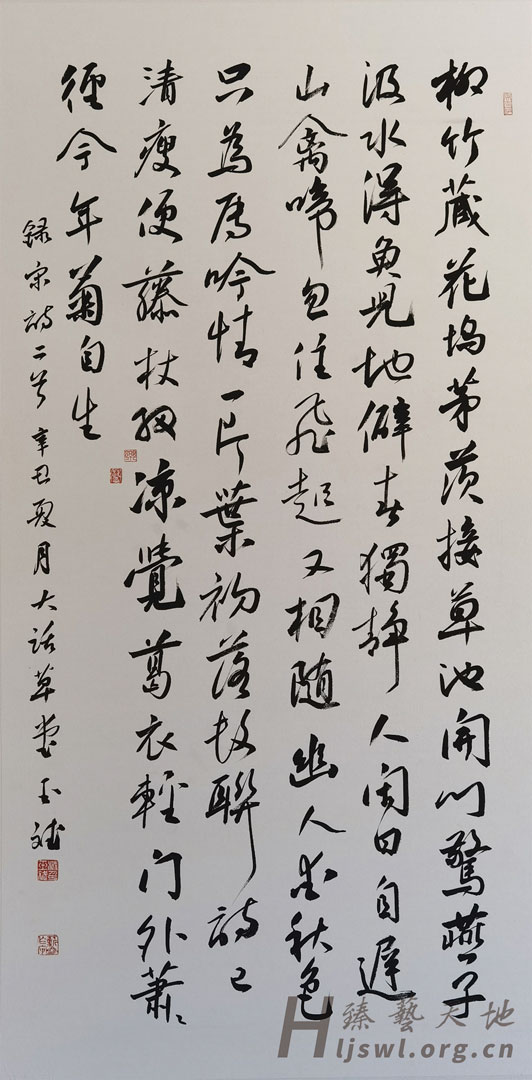 柳竹藏花塢茅茨接草池開门驚燕子
汲水得魚兒地僻春獨靜人闲日自遲
山禽啼忽住飛起又相随幽人愛秋色
只為属吟情一片葉初落数聯詩已
清瘦便藤杖細凉覺葛衣輕门外蕭〻
徑今年菊自生
録宋詩二首辛丑夏月大話草堂玉斌
臻藝天地
Hljswl.org.cn